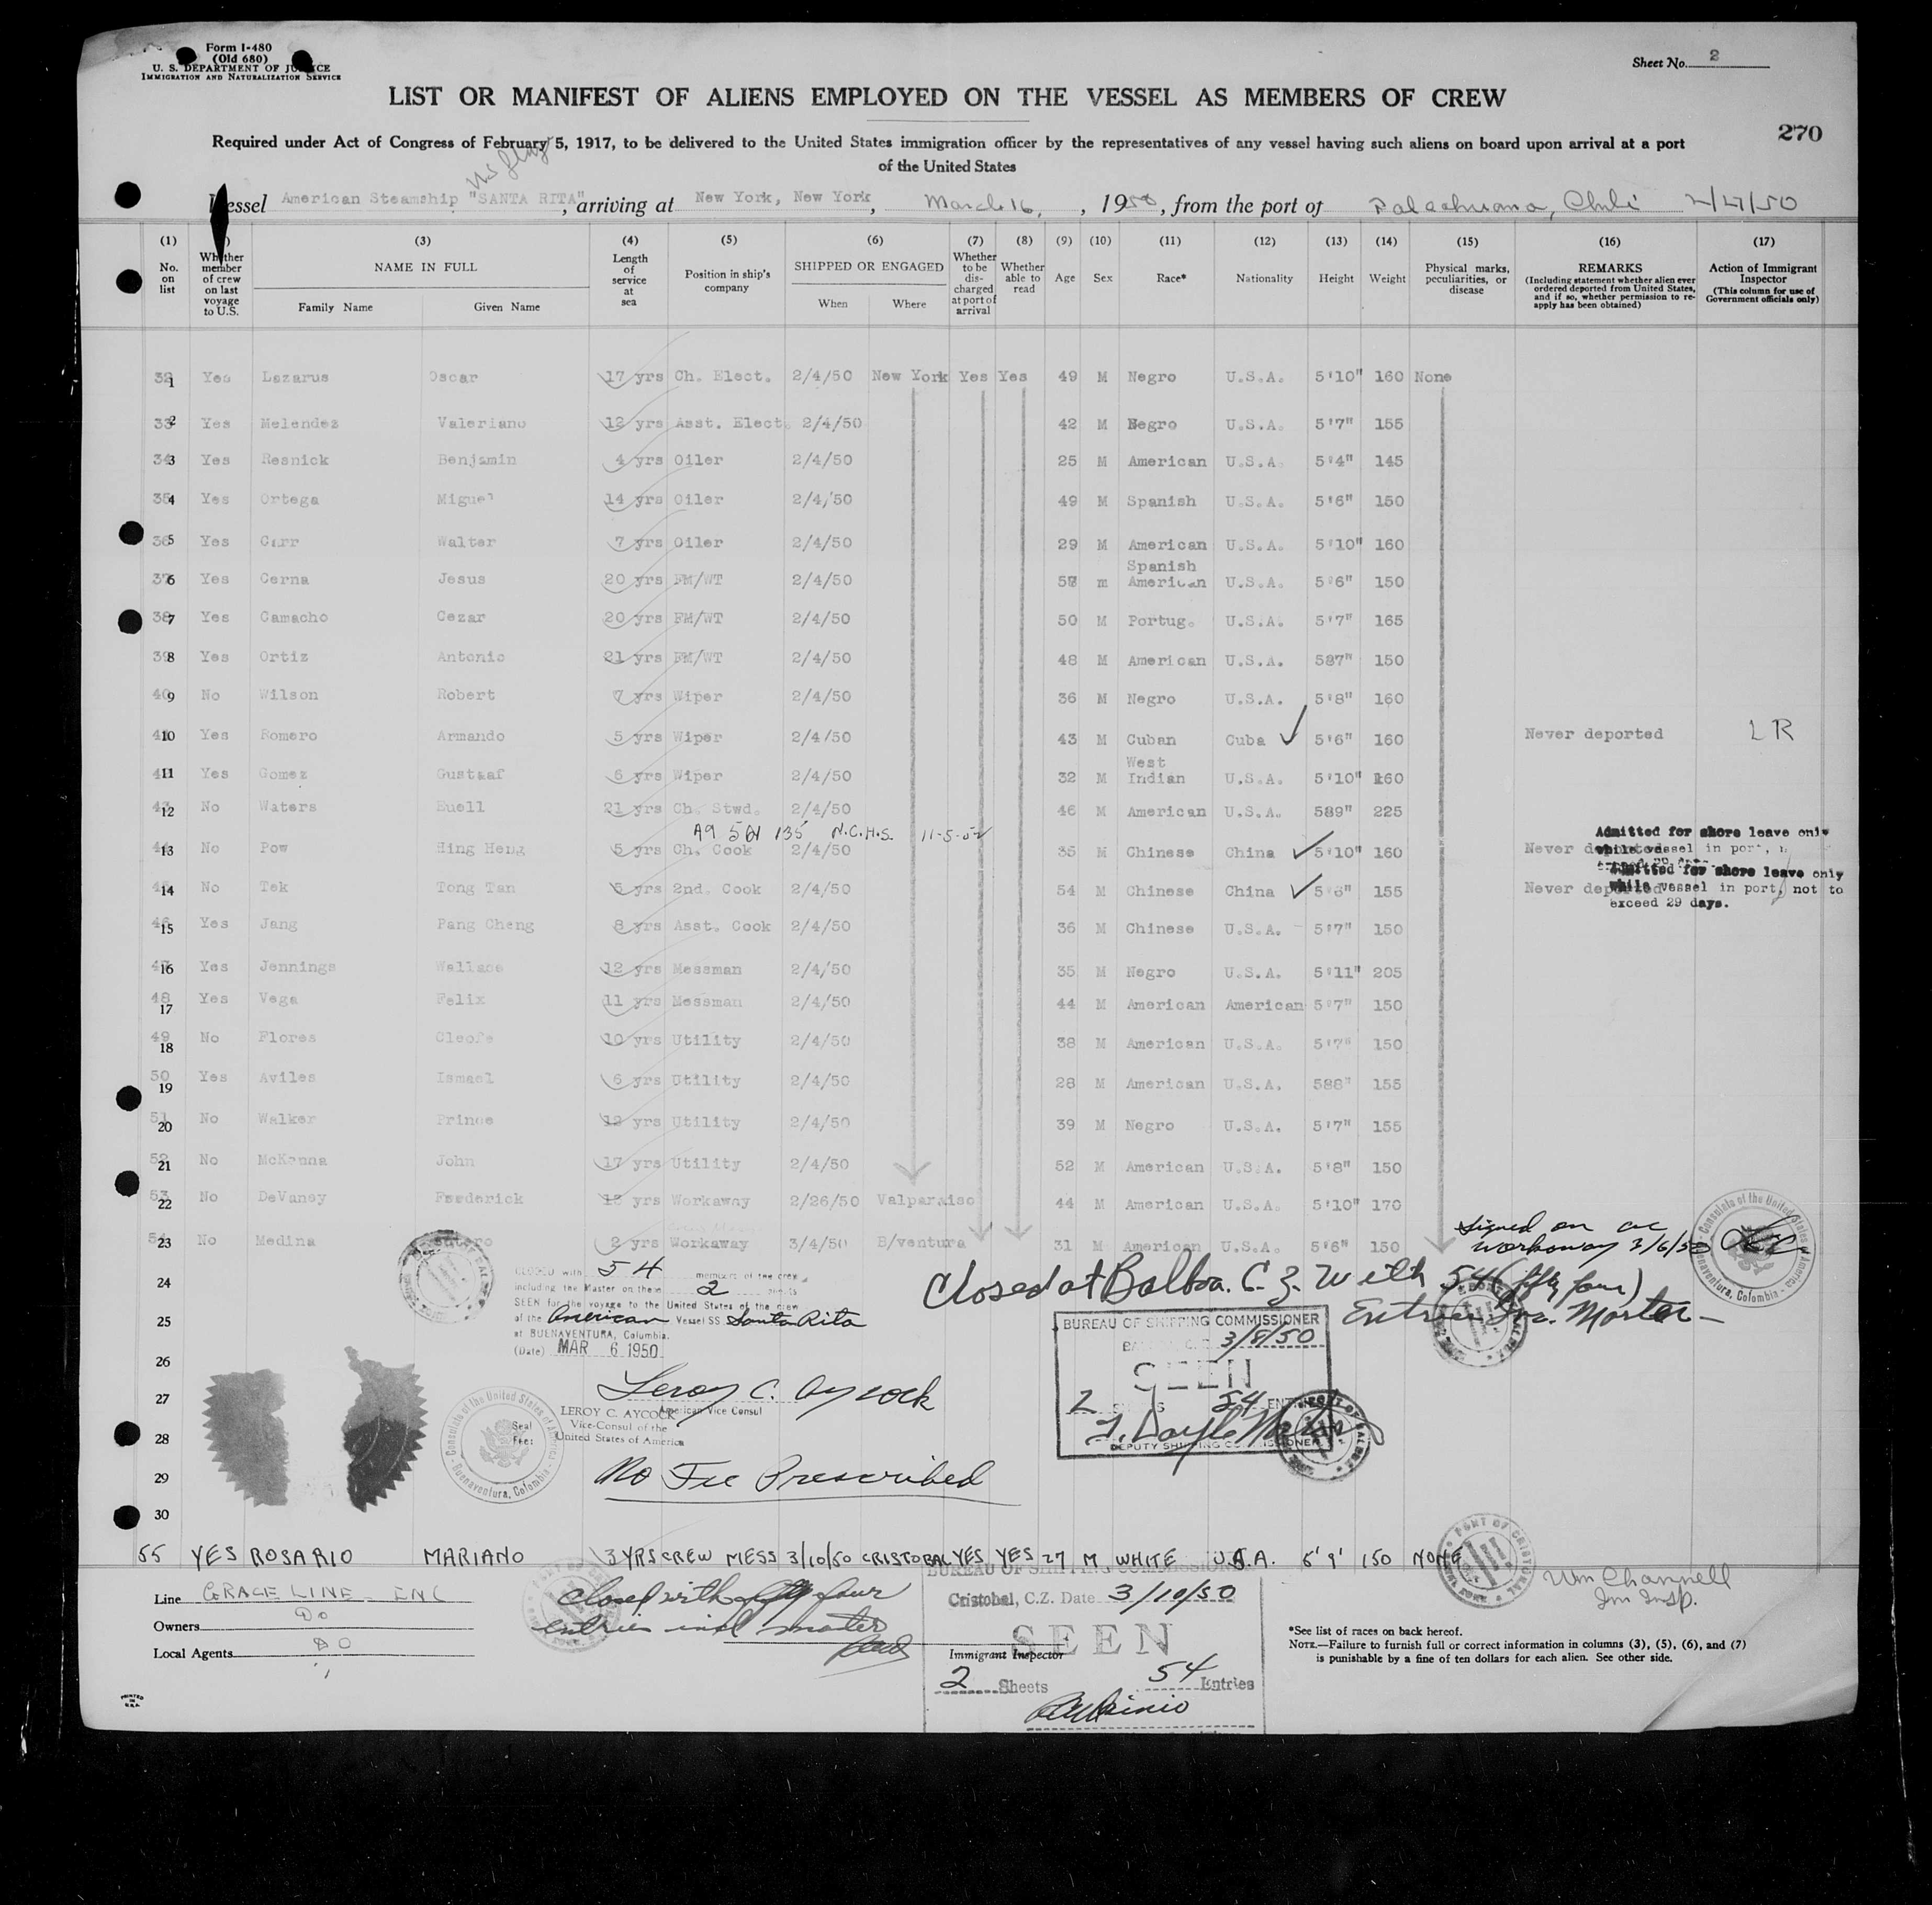 Form I-480
(Old 680)
U. S. DEPARTMENT OF JUSTICE
IMMIGRATION AND NATURALIZATION SERVICE
Sheet No. 2
LIST OR MANIFEST OF ALIENS EMPLOYED ON THE VESSEL AS MEMBERS OF CREW
270
Required under Act of Congress of February 5, 1917, to be delivered to the United States immigration officer by the representatives of any vessel having such aliens on board upon arrival at a port
of the United States
US flag
Vessel American Steamship "SANTA RITA", arriving at New York, New York, March 16, 1950, from the port of Talcahuano, Chile 2/27/50
(1) (3) (4) (5) (6) (7) (8) (9) (10) (11) (12) (13) (14) (15) (16) (17)
No. on list Whether member of crew on last voyage to U.S. NAME IN FULL Family Name Given Name Length of service at sea Position in ship's company SHIPPED OR ENGAGED When Where Whether to be discharged at port of arrival Whether able to read Age Sex Race* Nationality Height Weight Physical marks, peculiarities, or disease REMARKS (Including statement whether alien ever ordered deported from United States, and if so, whether permission to reapply has been obtained) Action of Immigrant Inspector (This column for use of Government officials only)
32 1 Yes Lazarus Oscar 17 yrs Ch. Elect. 2/4/50 New York Yes Yes 49 M Negro U.S.A. 5'10" 160 None
33 2 Yes Melendez Valeriano 12 yrs Asst. Elect. 2/4/50 42 M Negro U.S.A. 5'7" 155
34 3 Yes Resnick Benjamin 4 yrs Oiler 2/4/50 25 M American U.S.A. 5'4" 145
35 4 Yes Ortega Miguel 14 yrs Oiler 2/4/50 49 M Spanish U.S.A. 5'6" 150
36 5 Yes Carr Walter 7 yrs Oiler 2/4/50 29 M American U.S.A. 5'10" 160
37 6 Yes Cerna Jesus 20 yrs FM/WT 2/4/50 m Spanish American U.S.A. 5'6" 150
38 7 Yes Camacho Cezar 20 yrs FM/WT 2/4/50 50 M Portug. U.S.A. 5'7" 165
39 8 Yes Ortiz Antonio 21 yrs FM/WT 2/4/50 48 M American U.S.A. 587" 150
40 9 No Wilson Robert 7 yrs Wiper 2/4/50 36 M Negro U.S.A. 5'8" 160
41 10 Yes Romero Armando 5 yrs Wiper 2/4/50 43 M Cuban Cuba 5'6" 160 Never deported LR
42 11 Yes Gomez Gustaaf 6 yrs Wiper 2/4/50 32 M West Indian U.S.A. 5'10" 160
43 12 No Waters Euell 21 yrs Ch. Stwd. 2/4/50 46 M American U.S.A. 589" 225
A9 501 135 N.C.H.S. 11-5-52
44 13 No Pow Hing Heng 5 yrs Ch. Cook 2/4/50 35 M Chinese China 5'10" 160 Never deported Admitted for shore leave only while vessel in port,
45 14 No Tek Tong Tan 5 yrs 2nd. Cook 2/4/50 54 M Chinese China 5'6" 155 Never deported Admitted for shore leave only while vessel in port, not to exceed 29 days.
46 15 Yes Jang Pang Cheng 8 yrs Asst. Cook 2/4/50 36 M Chinese U.S.A. 5'7" 150
47 16 Yes Jennings Wallace 12 yrs Messman 2/4/50 35 M Negro U.S.A. 5'11" 205
48 17 Yes Vega Felix 11 yrs Messman 2/4/50 44 M American American 5'7" 150
49 18 No Flores Cleofe 10 yrs Utility 2/4/50 38 M American U.S.A. 5'7" 150
50 19 Yes Aviles Ismael 6 yrs Utility 2/4/50 28 M American U.S.A. 588" 155
51 20 No Walker Prince 12 yrs Utility 2/4/50 39 M Negro U.S.A. 5'7" 155
52 21 No McKenna John 17 yrs Utility 2/4/50 52 M American U.S.A. 5'8" 150
53 22 No DeVaney Frederick 12 yrs Workaway 2/26/50 Valparaiso 44 M American U.S.A. 5'10" 170
54 23 No Medina 2 yrs Workaway 3/4/50 B/ventura 31 M American U.S.A. 5'6" 150
Signed on as
workaway 3/6/50
24
25
26
27
28
29
30
CLOSED with 54 members of the crew
including the Master on these 2 sheets
SEEN for the voyage to the United States of the crew
of the American Vessel SS Santa Rita
at BUENAVENTURA, Colombia.
(Date) MAR 6 1950
Leroy C. Aycock
American Vice Consul
LEROY C. AYCOCK
Vice-Consul of the
United States of America
Seal
Fee:
Consulate of the United States of America - Buenaventura, Colombia -
No Fee Prescribed
Closed at Balboa. C. Z. With 54 (fifty four)
Entries Inc. Master -
BUREAU OF SHIPPING COMMISSIONER
3/8/50
SEEN
2 54 ENTRIES
DEPUTY SHIPPING COMMISSIONER
Consulate of the United States of America Buenaventura, Colombia
55 YES ROSARIO MARIANO 3 YRS CREW MESS 3/10/50 CRISTOBAL YES YES 27 M WHITE U.S.A. 5' 9' 150 NONE
PORT OF CRISTOBAL
Line GRACE LINE INC
Owners Do
Local Agents Do
Closed with fifty four
entries incl master
BUREAU OF SHIPPING COMMISSIONER
Cristobal, C.Z. Date 3/10/50
SEEN
Immigrant Inspector
2 Sheets 54 Entries
Wm Channell
Im Insp.
*See list of races on back hereof.
NOTE.—Failure to furnish full or correct information in columns (3), (5), (6), and (7)
is punishable by a fine of ten dollars for each alien. See other side.
PRINTED IN U.S.A.